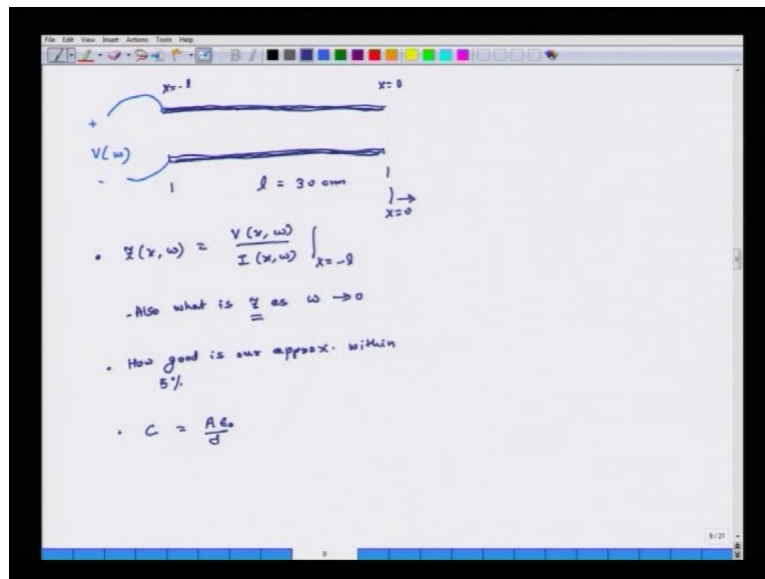 File Edit View Insert Actions Tools Help
x=-l x=0
+
V(ω)
-
l = 30 cm
x=0
• Z(x,ω) = V(x,ω) / I(x,ω) |x=-l
- Also what is Z as ω → 0
• How good is our approx. within
5%
• C = Aε₀/d
9/21
9